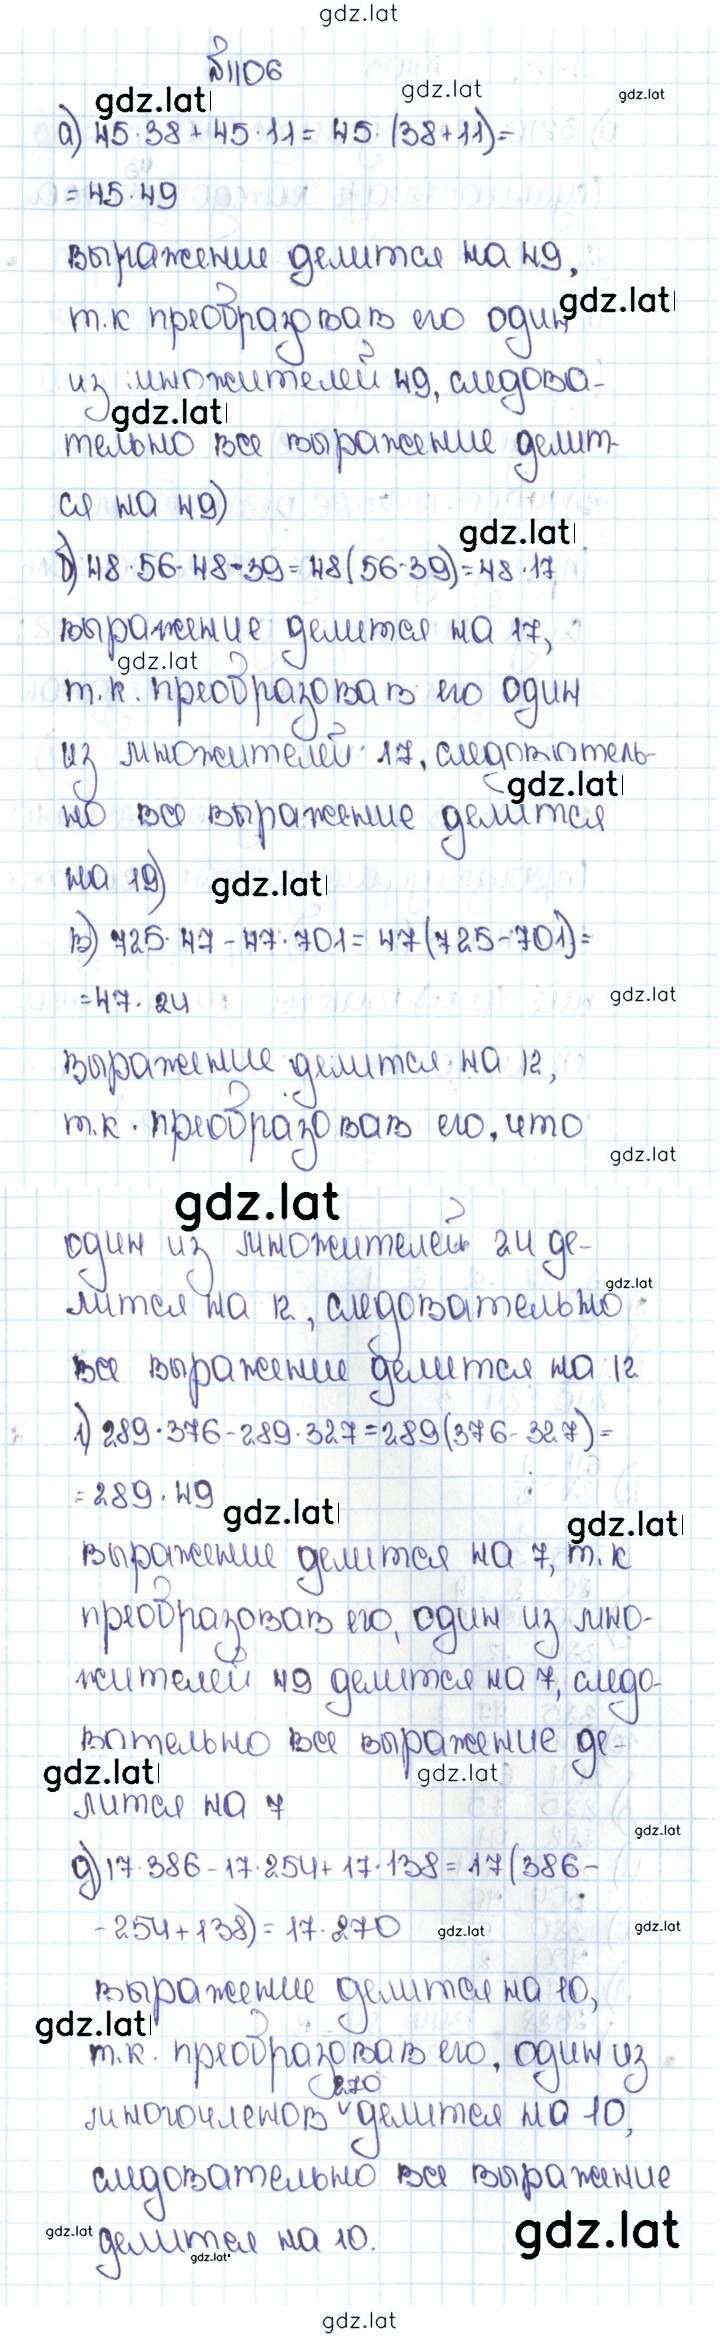 gdz.lat
№1106
gdz.lat gdz.lat gdz.lat
а) 45·38 + 45·11 = 45·(38+11)=
= 45·49
выражение делится на 49,
gdz.lat
т.к преобразовав его один
из множителей 49, следова-
gdz.lat
тельно все выражение делит-
ся на 49)
gdz.lat
б) 48·56-48·39=48(56-39)=48·17
выражение делится на 17,
gdz.lat
т.к. преобразовав его один
из множителей 17, следователь-
gdz.lat
но все выражение делится
на 19)
gdz.lat
в) 725·47-47·701=47(725-701)=
=47·24
gdz.lat
выражение делится на 12,
т.к. преобразовав его, что
gdz.lat
gdz.lat
один из множителей 24 де-
gdz.lat
лится на 12, следовательно
все выражение делится на 12
г) 289·376-289·327=289(376-327)=
=289·49
gdz.lat gdz.lat
выражение делится на 7, т.к
преобразовав его, один из мно-
жителей 49 делится на 7, следо-
вательно все выражение де-
gdz.lat gdz.lat
лится на 7
gdz.lat
д) 17·386-17·254+17·138=17(386-
-254+138)=17·270
gdz.lat gdz.lat
выражение делится на 10,
gdz.lat
т.к. преобразовав его, один из
270
многочленов делится на 10,
следовательно все выражение
gdz.lat
делится на 10.
gdz.lat
gdz.lat
gdz.lat